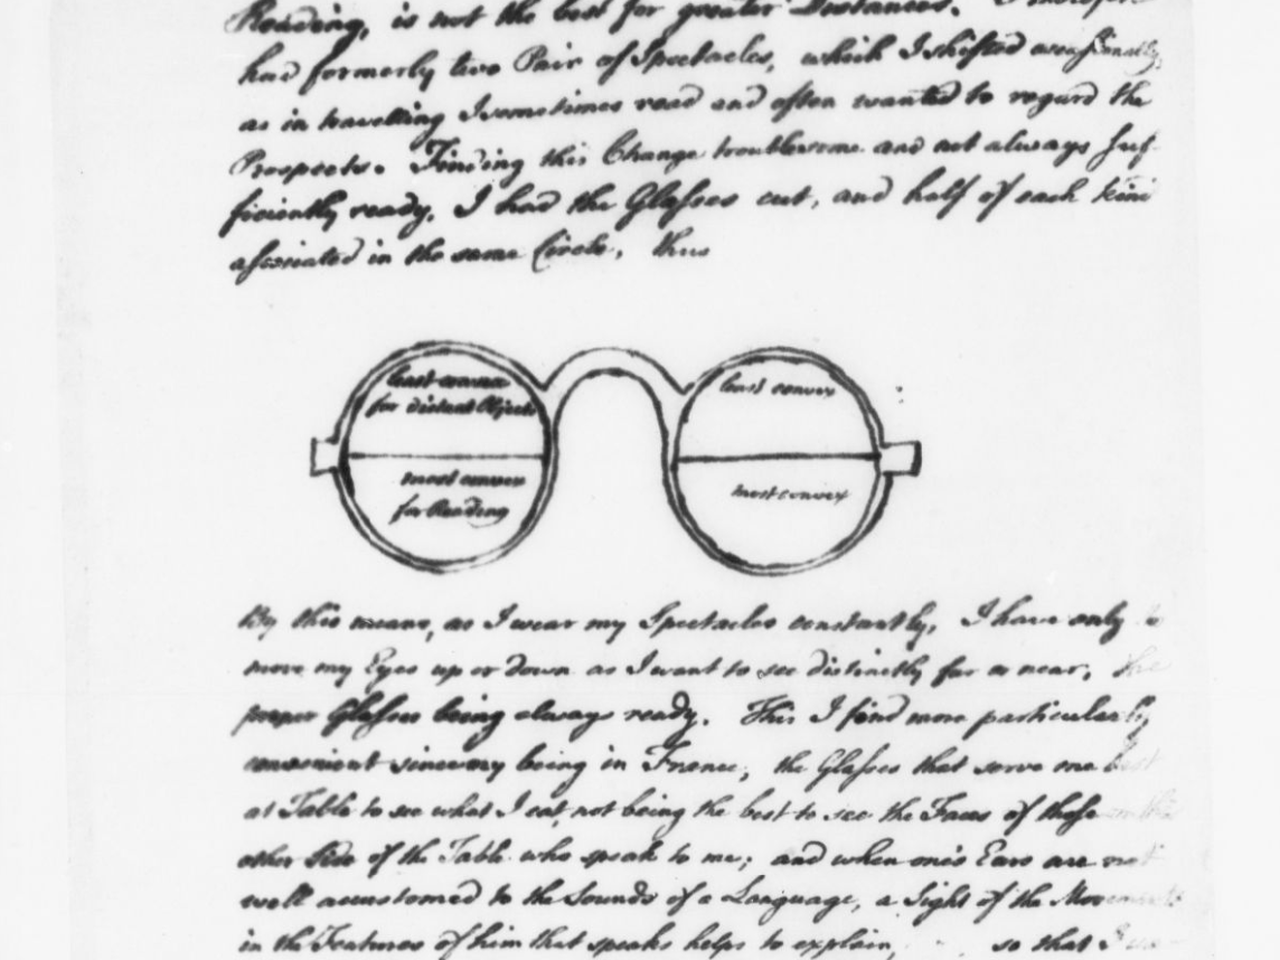 Reading, is not the best for greater Distances. I therefore
had formerly two Pair of Spectacles, which I shifted occasionally,
as in travelling I sometimes read and often wanted to regard the
Prospects. Finding this Change troublesome and not always suf-
ficiently ready, I had the Glasses cut, and half of each kind
associated in the same Circle, thus
least convex
for distant Objects
least convex
most convex
for Reading
most convex
By this means, as I wear my Spectacles constantly, I have only to
move my Eyes up or down as I want to see distinctly far or near, the
proper Glasses being always ready. This I find more particularly
convenient since my being in France, the Glasses that serve me best
at Table to see what I eat, not being the best to see the Faces of those on the
other Side of the Table who speak to me; and when one's Ears are not
well accustomed to the Sounds of a Language, a Sight of the Movements
in the Features of him that speaks helps to explain, so that I